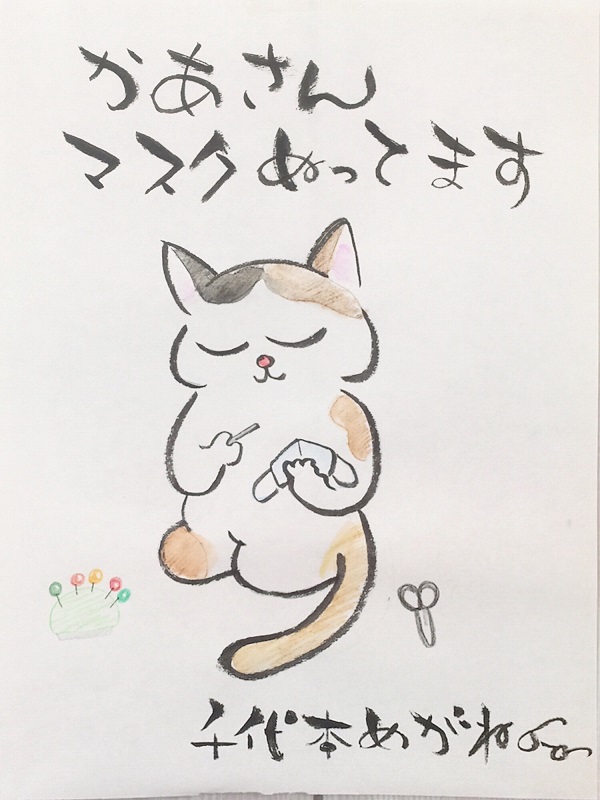 かあさん
マスクぬってます
千代本めがね